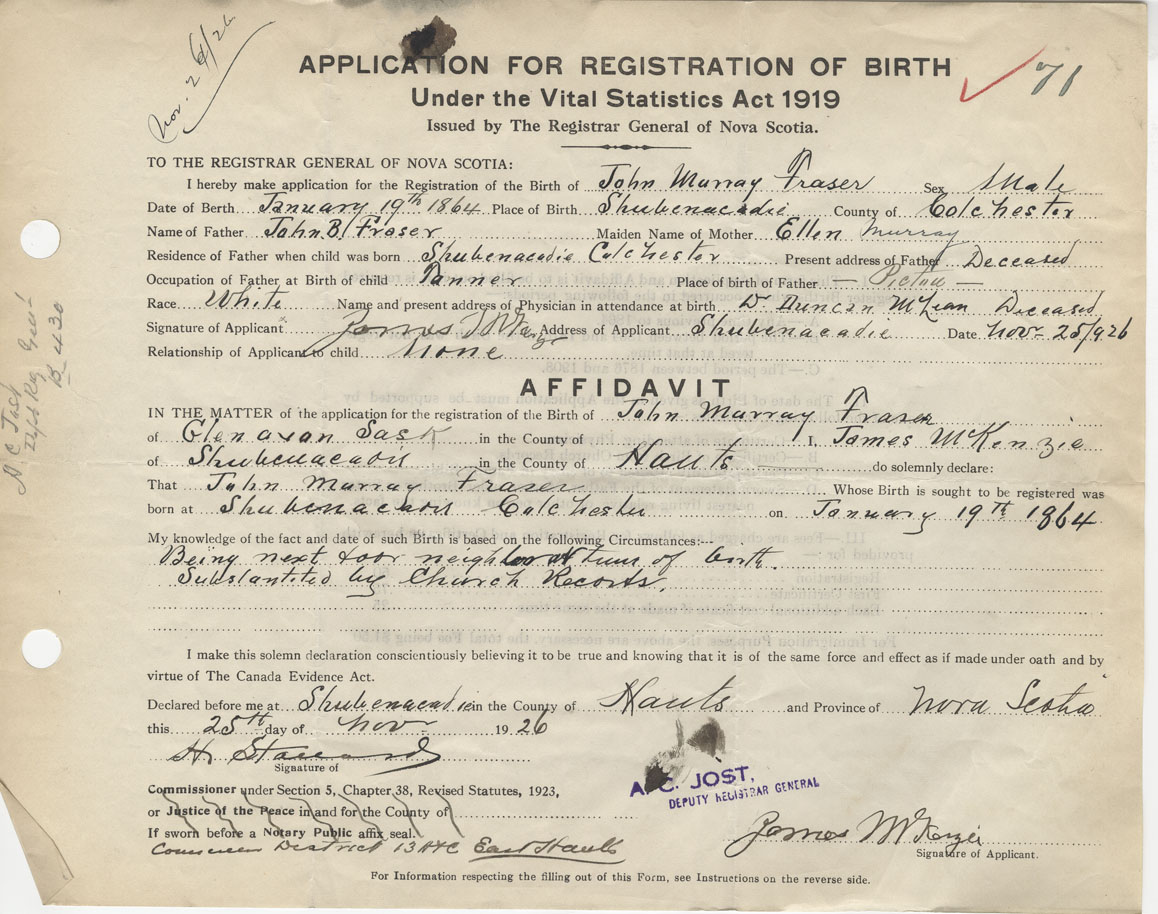 Nov. 26/26
APPLICATION FOR REGISTRATION OF BIRTH
71
Under the Vital Statistics Act 1919
Issued by The Registrar General of Nova Scotia.
TO THE REGISTRAR GENERAL OF NOVA SCOTIA:
I hereby make application for the Registration of the Birth of John Murray Fraser Sex Male
Date of Berth January 19th 1864 Place of Birth Shubenacadie County of Colchester
Name of Father John B Fraser Maiden Name of Mother Ellen Murray
Residence of Father when child was born Shubenacadie Colchester Present address of Father Deceased
Occupation of Father at Birth of child Tanner Place of birth of Father — Pictou —
Race White Name and present address of Physician in attendance at birth Dr Duncan McLean Deceased
Signature of Applicant James Address of Applicant Shubenacadie Date Nov 25/926
Relationship of Applicant to child none
AFFIDAVIT
IN THE MATTER of the application for the registration of the Birth of John Murray Fraser
of Glenavan Sask in the County of I, James McKenzie
of Shubenacadie in the County of Hants do solemnly declare:
That John Murray Fraser Whose Birth is sought to be registered was
born at Shubenacadie Colchester on January 19th 1864
My knowledge of the fact and date of such Birth is based on the following Circumstances:--
Being next door neighbor at time of birth.
Substantited by Church Records.
I make this solemn declaration conscientiously believing it to be true and knowing that it is of the same force and effect as if made under oath and by
virtue of The Canada Evidence Act.
Declared before me at Shubenacadie in the County of Hants and Province of Nova Scotia
this 25th day of Nov 1926
H
Signature of
A. C. JOST,
DEPUTY REGISTRAR GENERAL
Commissioner under Section 5, Chapter 38, Revised Statutes, 1923,
or Justice of the Peace in and for the County of
If sworn before a Notary Public affix seal.
District 13 East Hants
James McKenzie
Signature of Applicant.
For Information respecting the filling out of this Form, see Instructions on the reverse side.
A C Jost
B 430